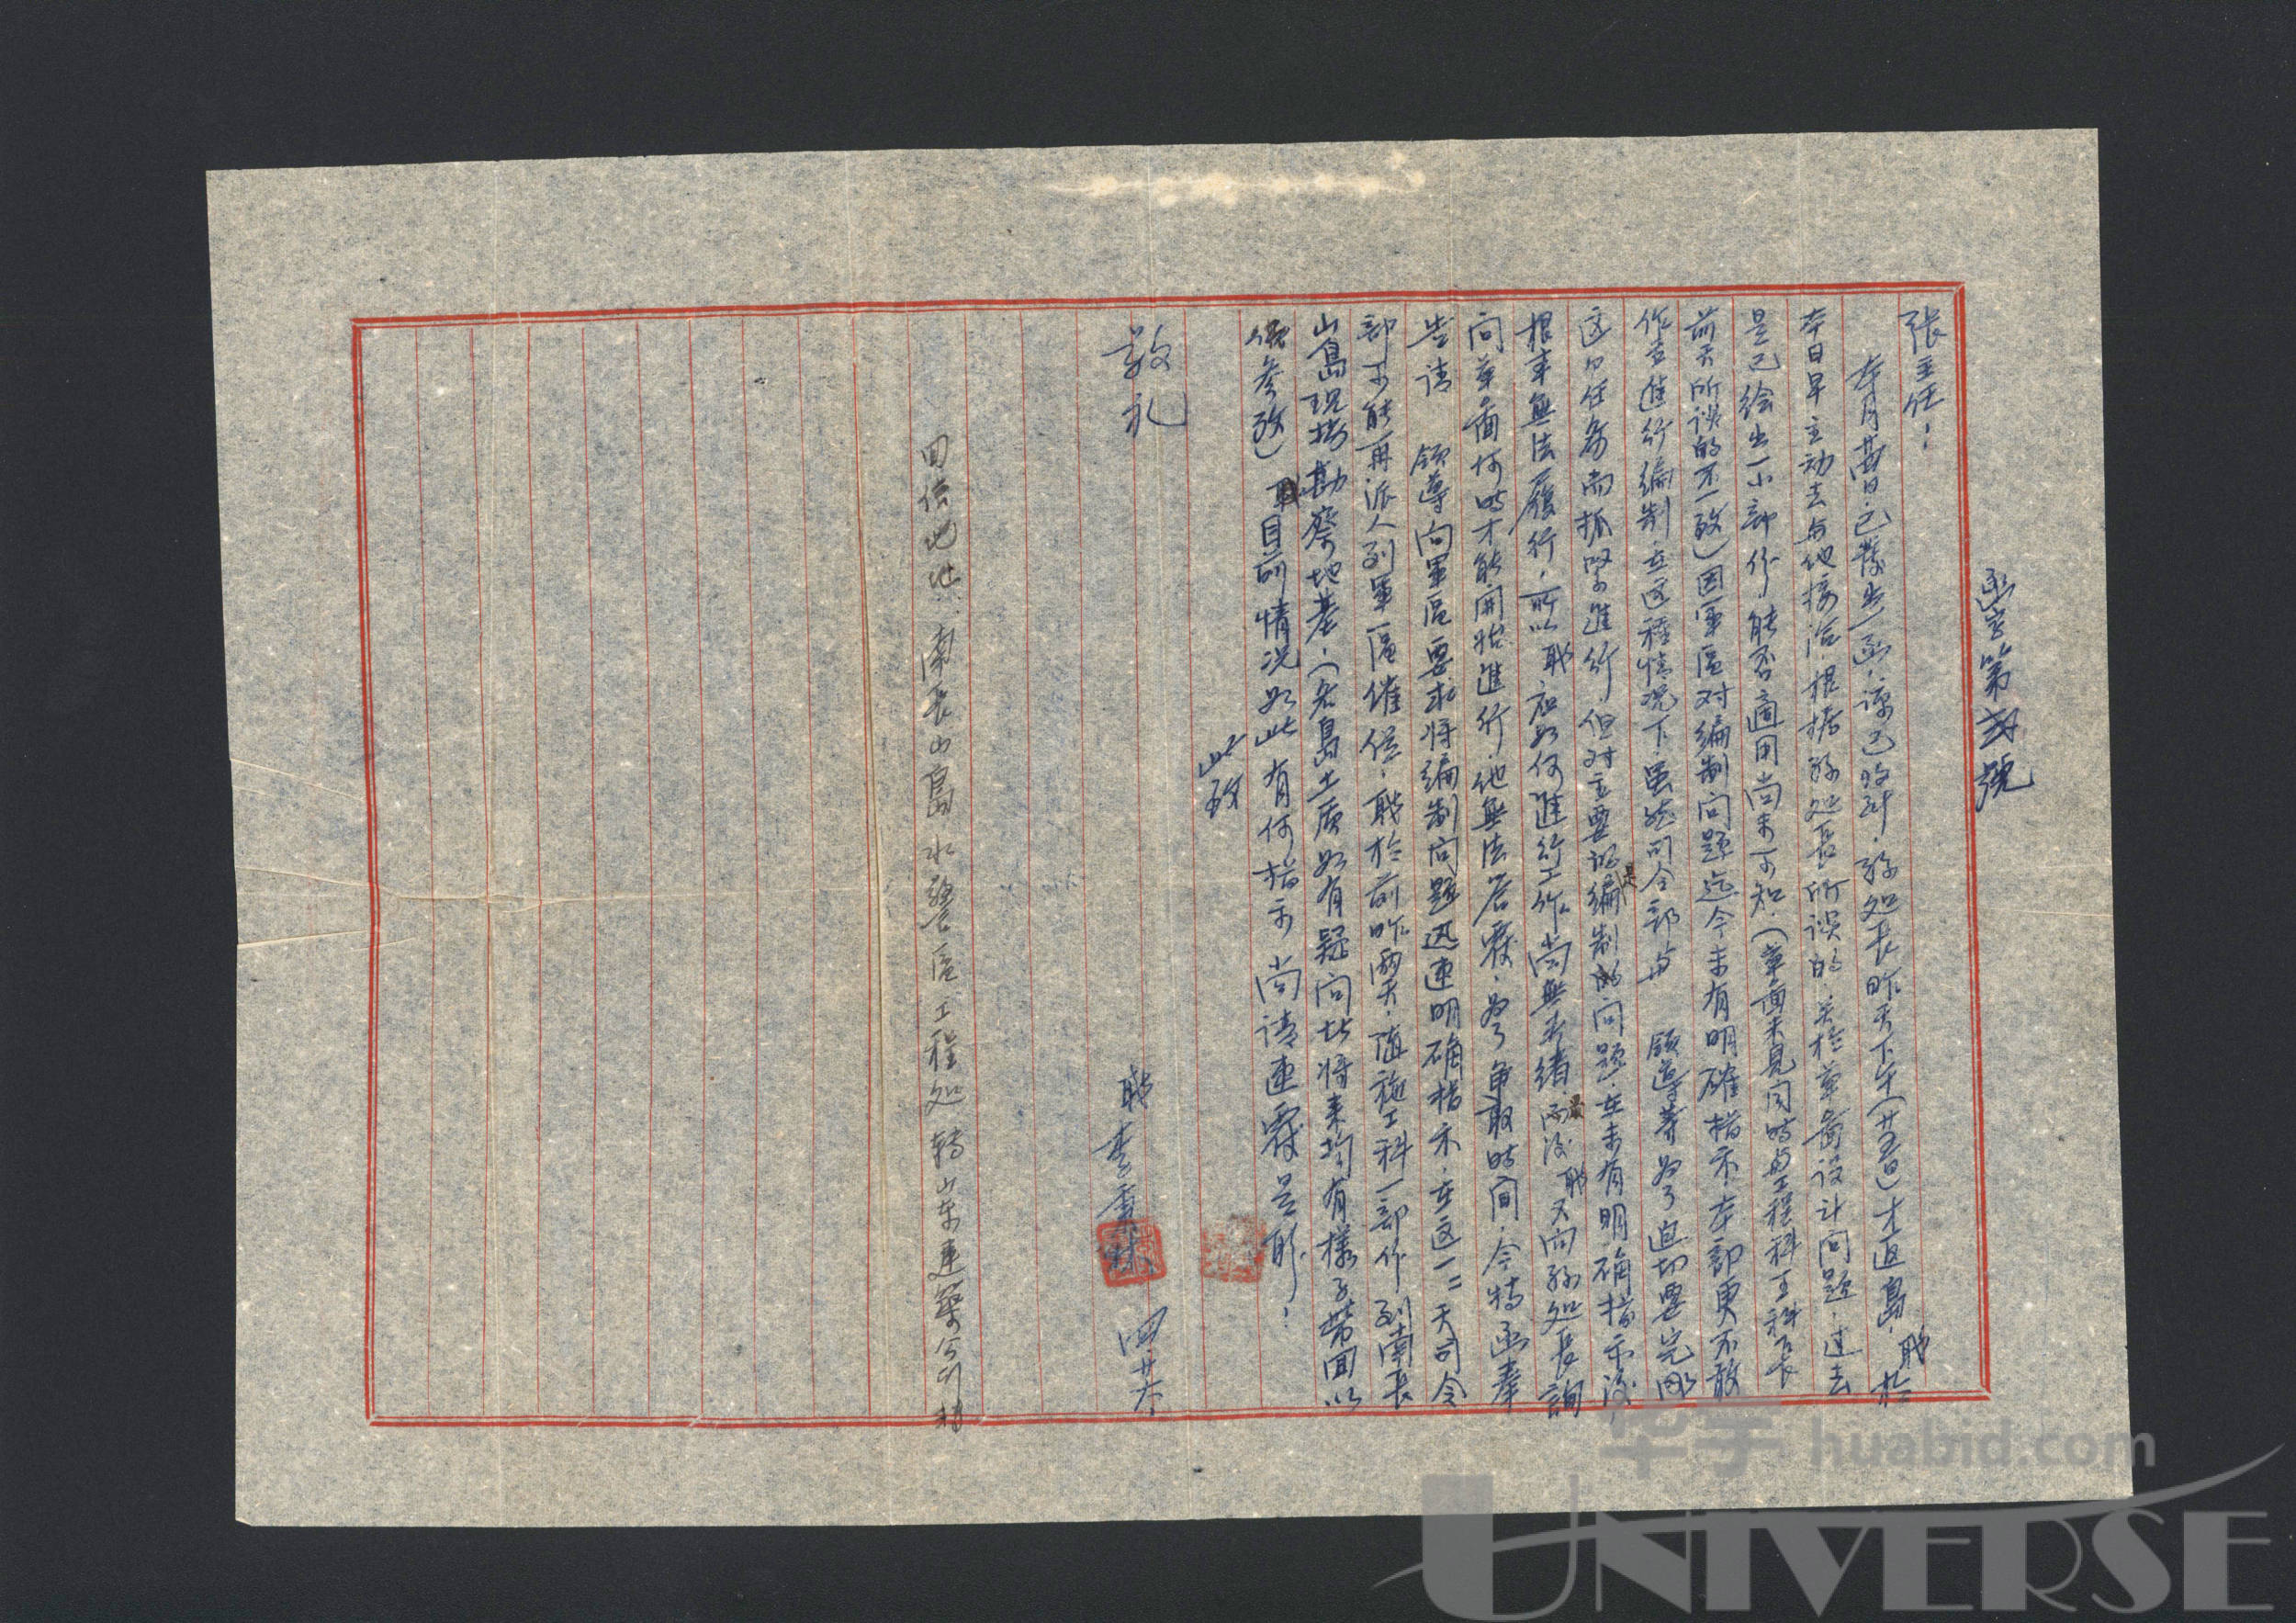 函字第弍號
張主任：
本月廿四日已發出一函，諒已收到，孫処長昨天下午（廿五日）才返島，职於
本日早主动去与他接洽，根据孫処長所談的，关於草畧设计问題，过去
是已绘出一小部份，能否適用尚未可知，（草面未見同時与工程科王科長
前天所談的不一致）因軍區对编制问題迄今未有明確指示，本部更不敢
作主進行编制，在这種情况下，虽然司令部与　領導等为了迫切要完成
这个任务而抓緊進行，但对主要的是编制的问题，在未有明确指示後，
根本無法履行，所以职应如何進行工作尚無头绪，最後职又向孫処長詢
问草面何时才能開始進行，他無法答覆，为了争取时间，今特函奉
告请　領導向軍區要求将编制问题迅速明确指示，在这一二天司令
部可能再派人到軍區催促，职於前昨两天，随施工科一部作到南長
山島現塲勘察地基，（各島土质如有疑问处将来均有樣子带回以
供參攷）目前情况如此有何指示尚请速覆是盼！
此致
敬礼
职李秉林　四、廿六、
回信地址：南長山島水警區工程処轉山东建築公司
华宇 huabid.com
UNIVERSE